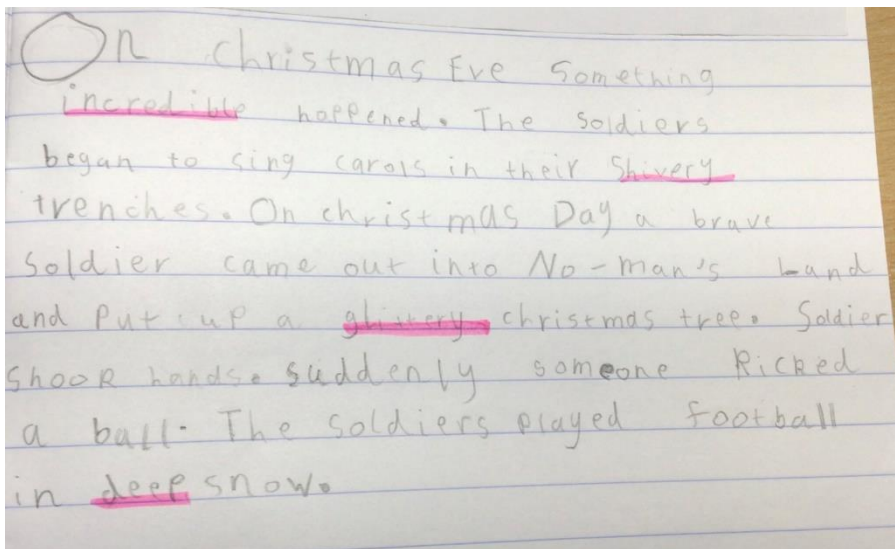 On christmas Eve Something
incredible happened. The soldiers
began to sing carols in their Shivery
trenches. On christmas Day a brave
Soldier came out into No-man's Land
and put up a glittery christmas tree. Soldier
Shook hands. suddenly someone kicked
a ball. The soldiers played football
in deep snow.